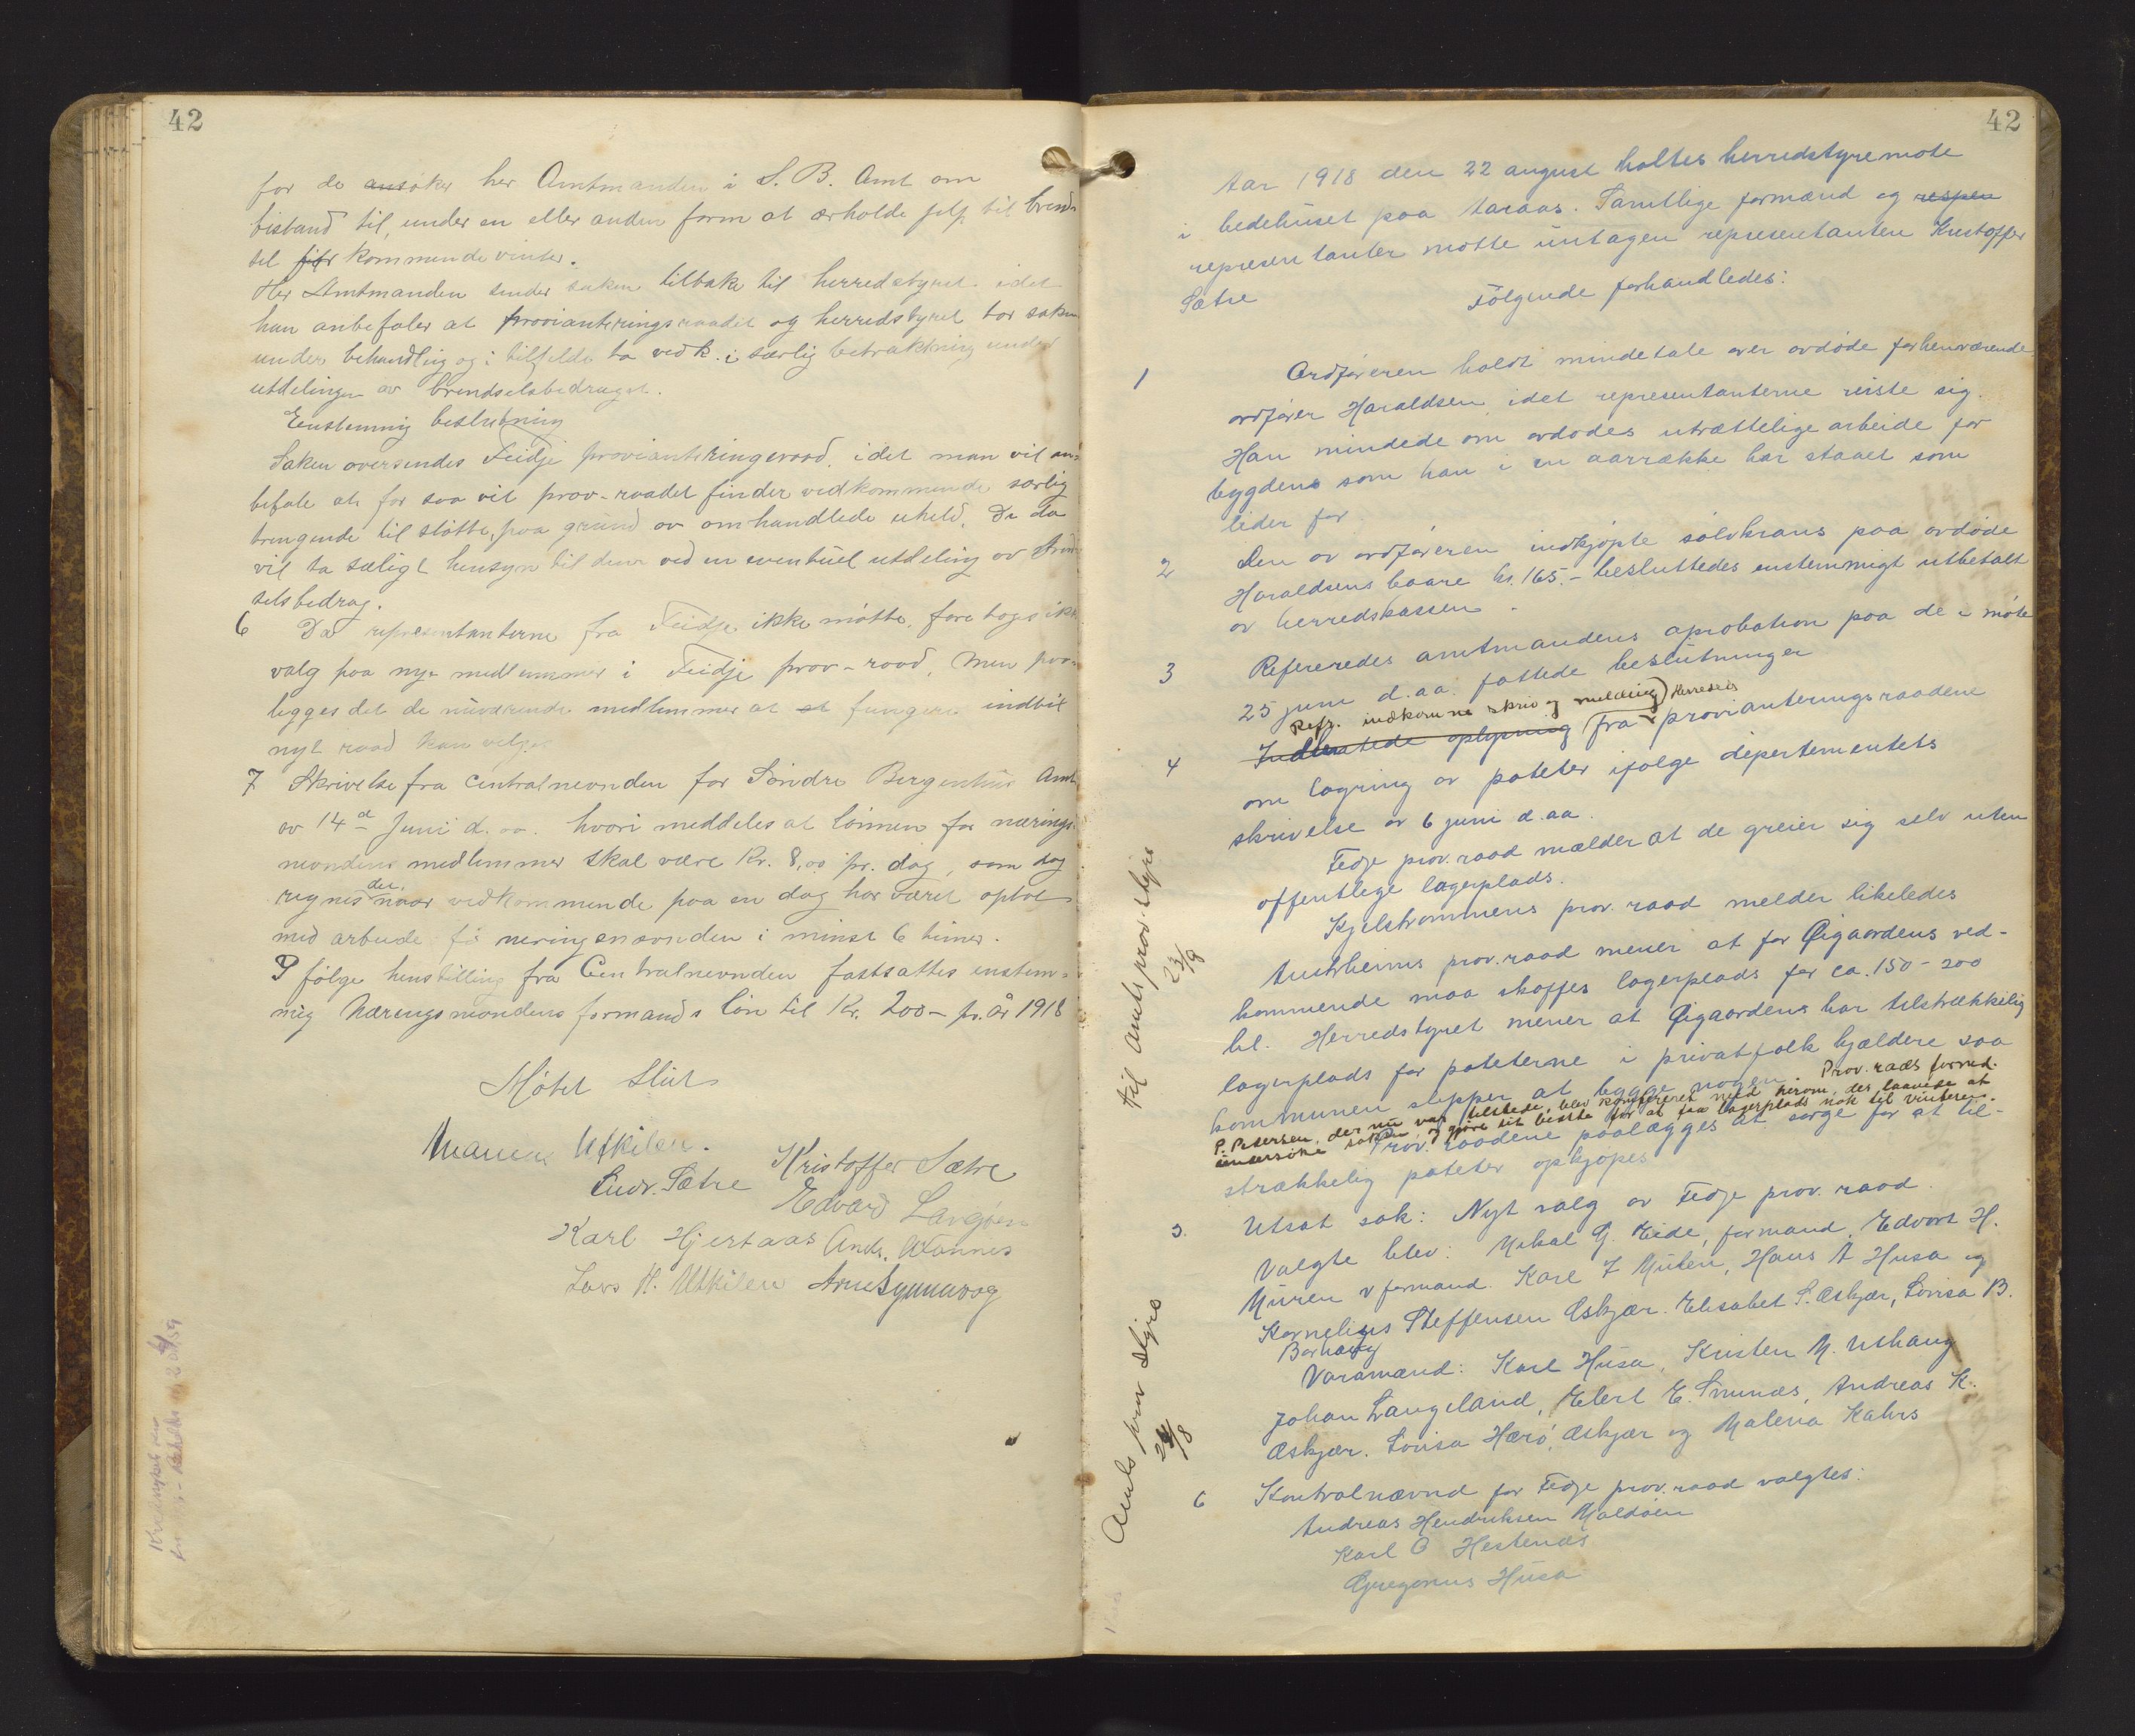 42
for de ansöker her Amtmanden i S. B. Amt om
bistand til, under en eller anden form at erholde jelp til brend-
sel for kommende vinter.
Her Amtmanden sender saken tilbake til herredstyret idet
han anbefaler at provianteringsraadet og herredstyret tar saken
under behandling og i tilfelde ta vedk. i særlig betraktning under
utdelingen av brendselsbedraget.
Enstemmig beslutning
Saken oversendes Feidje provianteringsraad, idet man vil an-
befale at for saa vit prov-raadet finder vedkommende særlig
trengende til støtte, paa grund av omhandlede uheld. De da
vil ta særligt hensyn til dem ved en eventuel utdeling av brend-
selsbedrag.
6 Da representanterne fra Feidje ikke møtte, foretogs ikke
valg paa nye medlemmer i Feidje prov-raad, men paa-
legges det de nuværende medlemmer at fungere indtil
nyt raad kan velges
7 Skrivelse fra Centralnevnden for Söndre Bergenhus Amt
av 14de Juni d. aa. hvori meddeles at lönnen for nærings-
nevndens medlemmer skal være Kr. 8,00 pr. dag, som dag
regnes det, naar vedkommende paa en dag har været optat
med arbeide få neringsnevnden i minst 6 timer.
I følge henstilling fra Centralnevnden fastsattes enstem-
mig Næringsnevndens formands lön til Kr. 200- pr. år 1918
Møtet Slut
Utkilen.
Kristoffer Sætre
Endr. Sætre
Edvard Langøen
Karl Hjertaas Andr. Wannes
Lars H. Utkilen Arne Synnevaag
42
Aar 1918 den 22 august holtes herredstyremøte
i bedehuset paa Aaraas. Samtlige formænd og respen
representanter møtte untagen representanten Kristoffer
Sætre
Følgende forhandledes:
1 Ordføreren holdt mindetale over avdøde forhenværende
ordfører Haraldsen, idet representanterne reiste sig.
Han mindede om avdødes utrættelige arbeide for
bygdens som han i en aarrække har staaet som
leder for
2 Den av ordføreren indkjøpte sølvkrans paa avdøde
Haraldsens baare kr. 165.- besluttedes enstemmigt utbetalt
av herredskassen.
3 Refereredes amtmandens aprobation paa de i møte
25 juni d.aa. fattede beslutninger
Refr. indkomne skriv og melding) Herredets
4 oplysning fra provianteringsraadene
om lagring av poteter ifølge departementets
skrivelse av 6 juni d.aa.
Fedje prov. raad mælder at de greier sig selv uten
offentlige lagerplads.
Kjelstrømmens prov. raad melder likeledes
Austrheims prov. raad mener at for Øigaardens ved-
kommende maa skaffes lagerplads for ca. 150-200
hl. Herredstyret mener at Øigaardens har tilstrækkelig
lagerplads for poteterne i privatfolk kjældere saa
kommunen slipper at bygge nogen. Prov. raads formd.
P. Petersen, der nu var tilstede, blev konfereret med herom, der laavede at
undersøke saken, og gjøre sit beste for at faa lagerplads nok til vinteren.
Prov. raadene paalægges at sørge for at til-
strækkelig poteter opkjøpes
5. Utsat sak: Nyt valg av Fedje prov. raad.
Valgte blev: Mikal G. Eide, formand, Edvart H.
Muren v formand. Karl J Muren, Hans A Husa og
Kornelius Steffensen Æskjær. Elisabet S. Æskjær, Lovisa B.
Varamænd: Karl Husa, Kristen M. Uthaug
Johan Langeland, Elert E. Smines, Andreas K.
Æskjær. Lovisa Hærø, Æskjær og Malena Kahrs
6 Kontrolnævnd for Fedje prov. raad valgtes:
Andreas Hendriksen Moldøen
Karl O Hestenæs
Gregorius Husa
til amts prov. styre
23/8
Amts prov styre